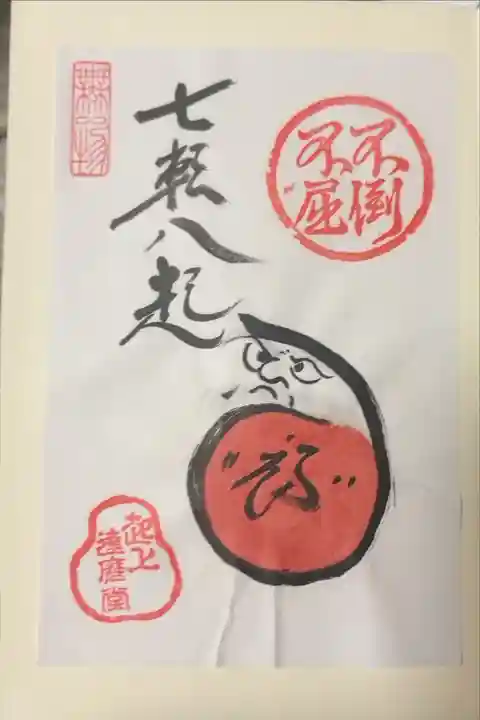 不倒
不屈
七転八起
起上
達磨堂